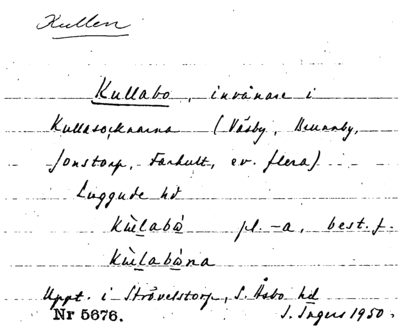 Kullen
Kullabo, invånare i
Kullasocknarna (Väsby, Brunnby,
Jonstorp, Farhult, ev. flera)
Luggude hd
kùlabå pl. -a, best. f.
kùlabåna
Uppt. i Strövelstorp, S. Åsbo hd
Nr 5676. S. Ingers 1950.